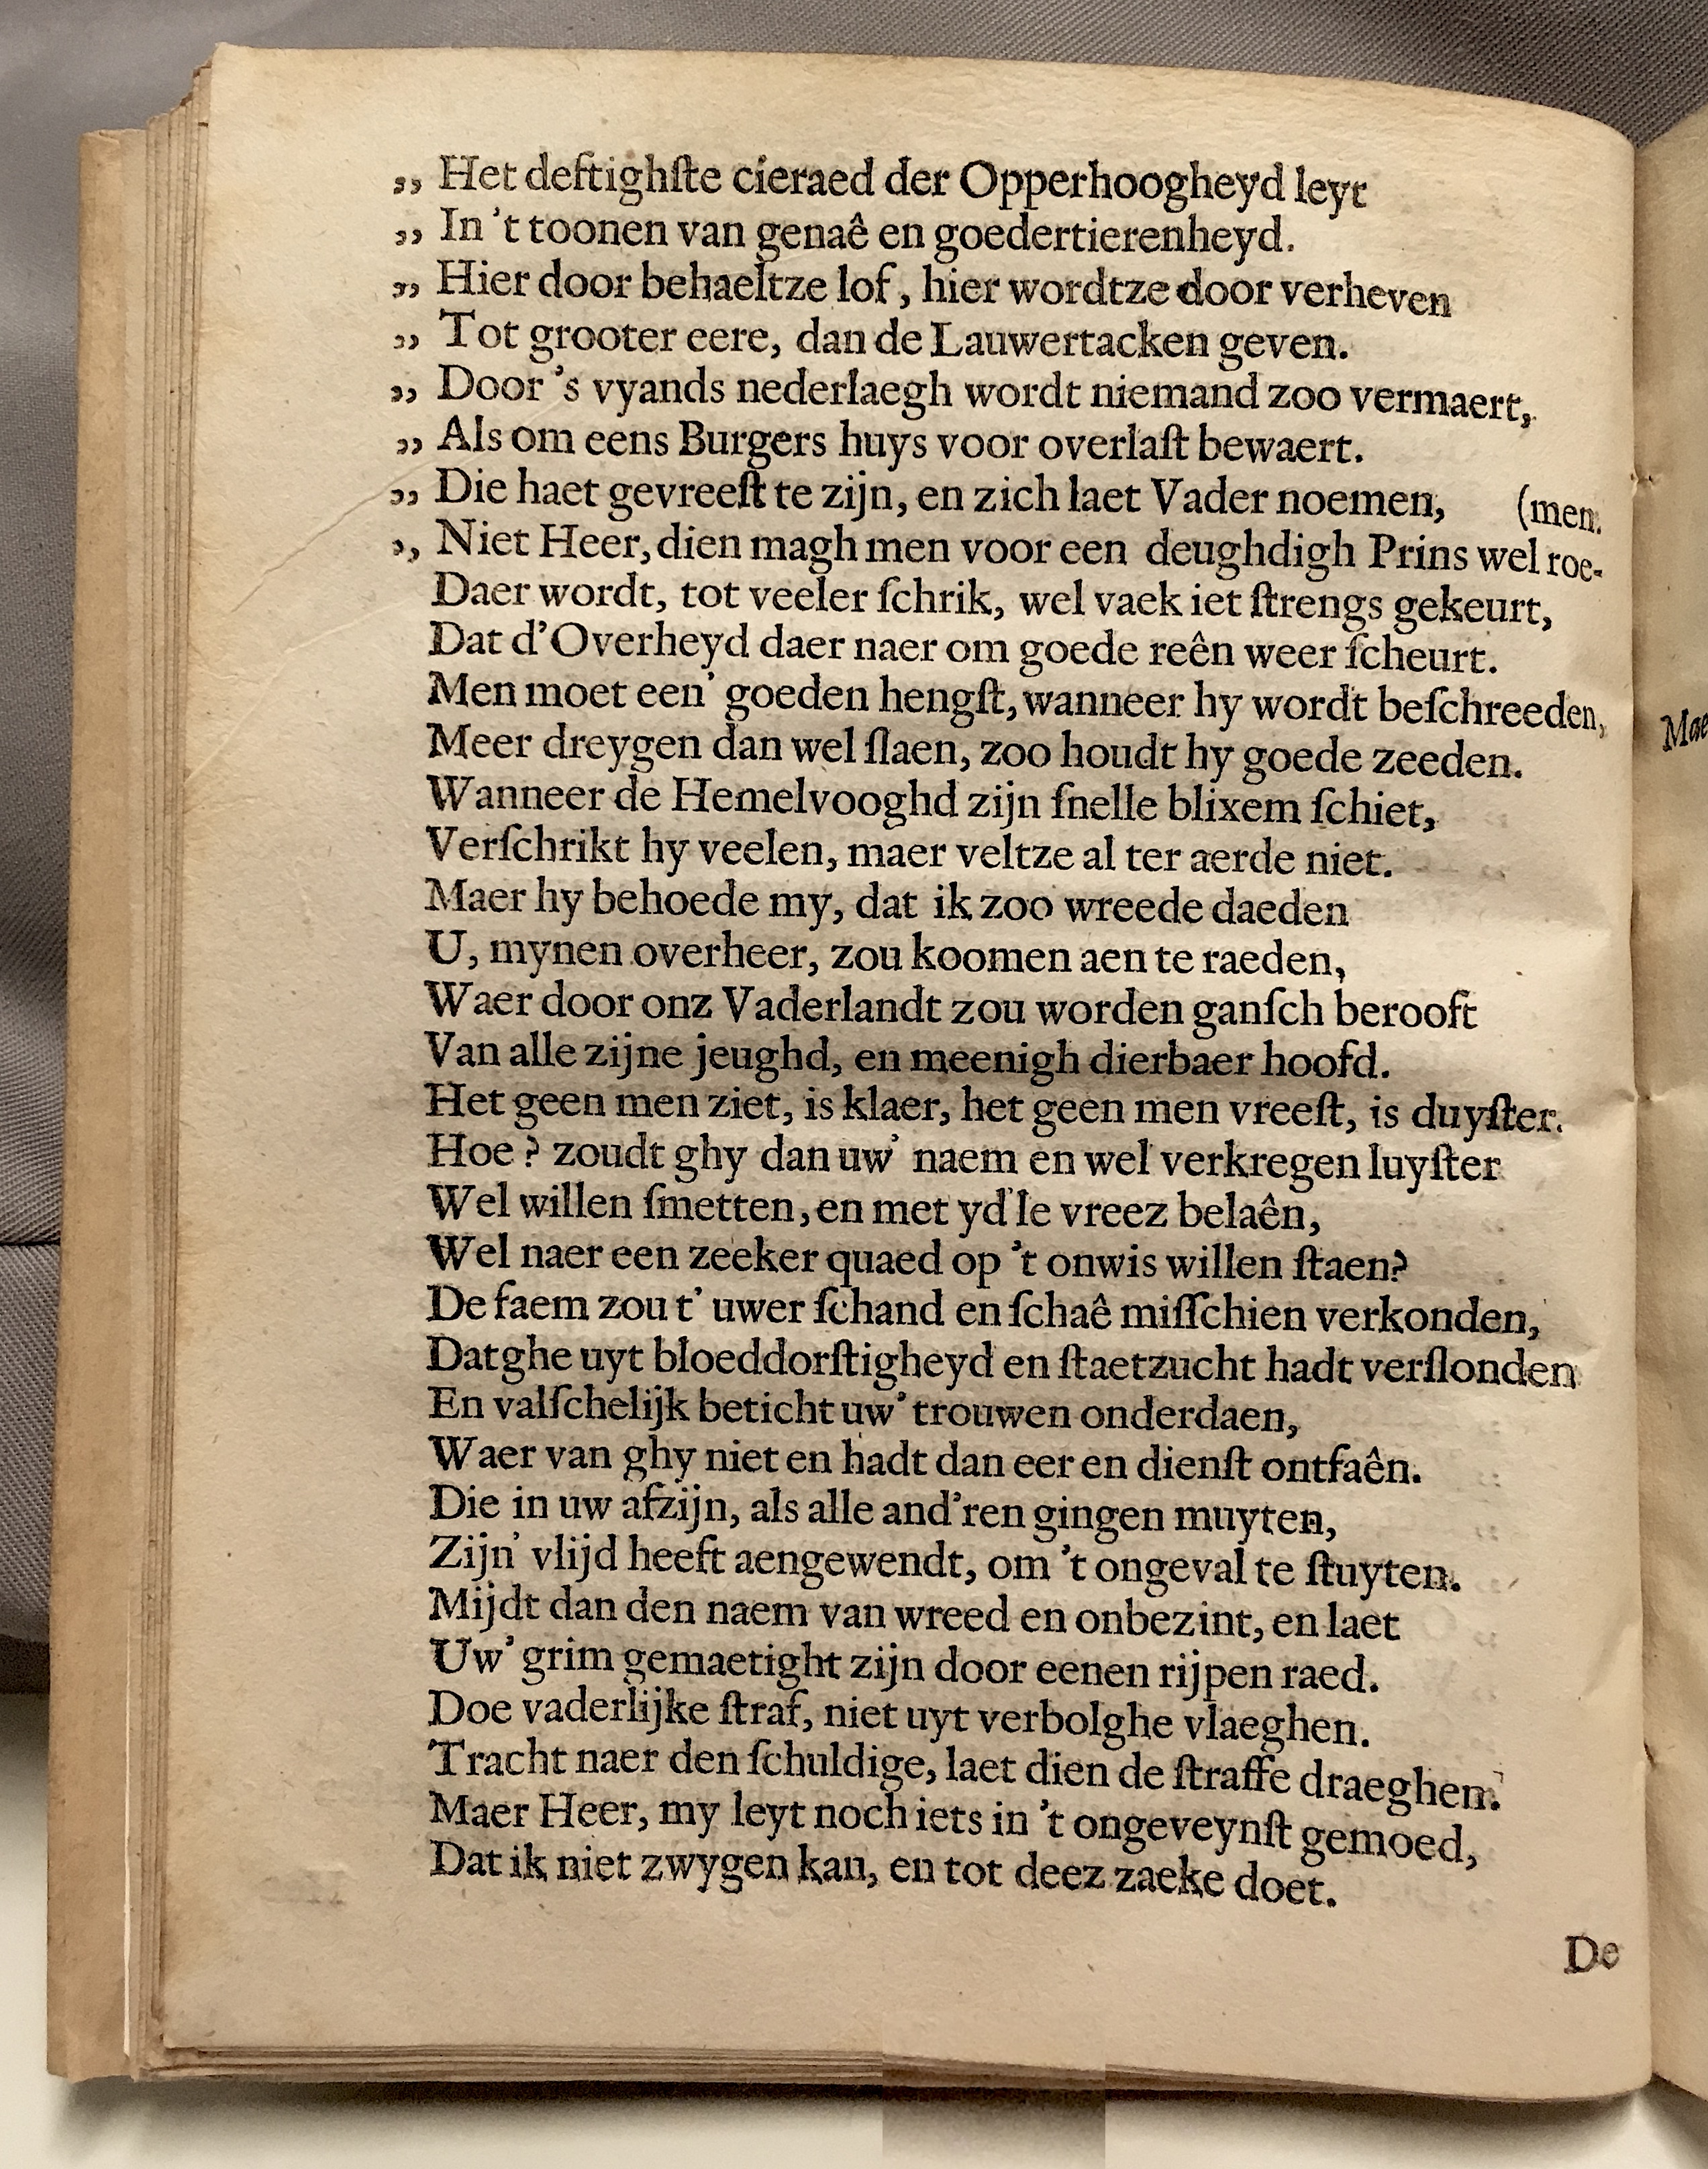 „ Het deftighſte cieraed der Opperhoogheyd leyt
„ In 't toonen van genaê en goedertierenheyd.
„ Hier door behaeltze lof, hier wordtze door verheven
„ Tot grooter eere, dan de Lauwertacken geven.
„ Door 's vyands nederlaegh wordt niemand zoo vermaert,
„ Als om eens Burgers huys voor overlaſt bewaert.
„ Die haet gevreeſt te zijn, en zich laet Vader noemen, (men.
„ Niet Heer, dien magh men voor een deughdigh Prins wel roe-
Daer wordt, tot veeler ſchrik, wel vaek iet ſtrengs gekeurt,
Dat d'Overheyd daer naer om goede reên weer ſcheurt.
Men moet een' goeden hengſt, wanneer hy wordt beſchreeden,
Meer dreygen dan wel ſlaen, zoo houdt hy goede zeeden.
Wanneer de Hemelvooghd zijn ſnelle blixem ſchiet,
Verſchrikt hy veelen, maer veltze al ter aerde niet.
Maer hy behoede my, dat ik zoo wreede daeden
U, mynen overheer, zou koomen aen te raeden,
Waer door onz Vaderlandt zou worden ganſch berooft
Van alle zijne jeughd, en meenigh dierbaer hoofd.
Het geen men ziet, is klaer, het geen men vreeſt, is duyſter.
Hoe ? zoudt ghy dan uw' naem en wel verkregen luyſter
Wel willen ſmetten, en met yd'le vreez belaên,
Wel naer een zeeker quaed op 't onwis willen ſtaen?
De faem zou t' uwer ſchand en ſchaê miſſchien verkonden,
Dat ghe uyt bloeddorſtigheyd en ſtaetzucht hadt verſlonden
En valſchelijk beticht uw' trouwen onderdaen,
Waer van ghy niet en hadt dan eer en dienſt ontfaên.
Die in uw afzijn, als alle and'ren gingen muyten,
Zijn' vlijd heeft aengewendt, om 't ongeval te ſtuyten.
Mijdt dan den naem van wreed en onbezint, en laet
Uw' grim gemaetight zijn door eenen rijpen raed.
Doe vaderlijke ſtraf, niet uyt verbolghe vlaeghen.
Tracht naer den ſchuldige, laet dien de ſtraffe draeghen.
Maer Heer, my leyt noch iets in 't ongeveynſt gemoed,
Dat ik niet zwygen kan, en tot deez zaeke doet.
De
Mae